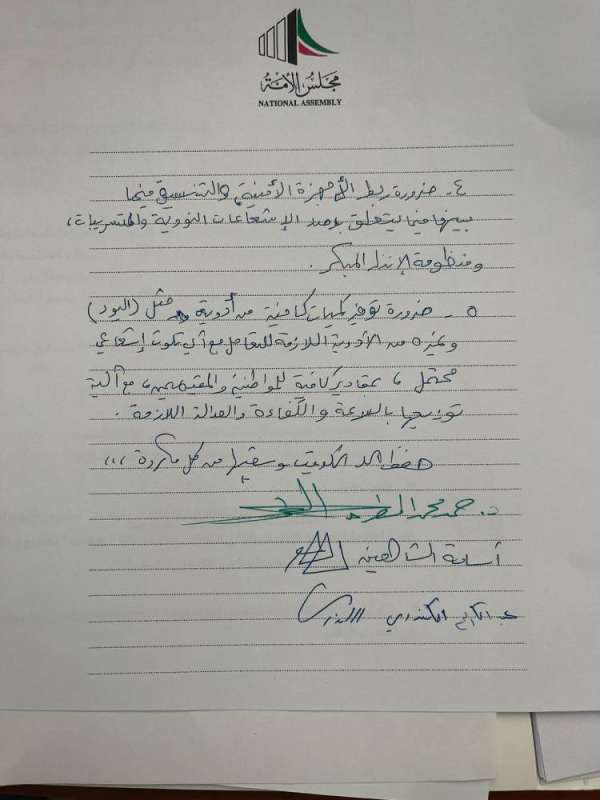 مجلس الأمة
NATIONAL ASSEMBLY
٤- ضرورة ربط الأجهزة الأمنية والتنسيق فيما
بينها فيما يتعلق برصد الإشعاعات النووية والتسريبات،
ومنظومة الإنذار المبكر.
٥- ضرورة توفير كميات كافية من أدوية مثل (اليود)
وغيره من الأدوية اللازمة للتعامل مع أي تلوث إشعاعي
محتمل، بمقادير كافية للمواطنين والمقيمين، مع آلية
توزيعها بالسرعة والكفاءة والعدالة اللازمة.
حفظ الله الكويت وشعبها من كل مكروه،،،
د. حمد محمد المطر
أسامة الشاهين
عبدالكريم الكندري